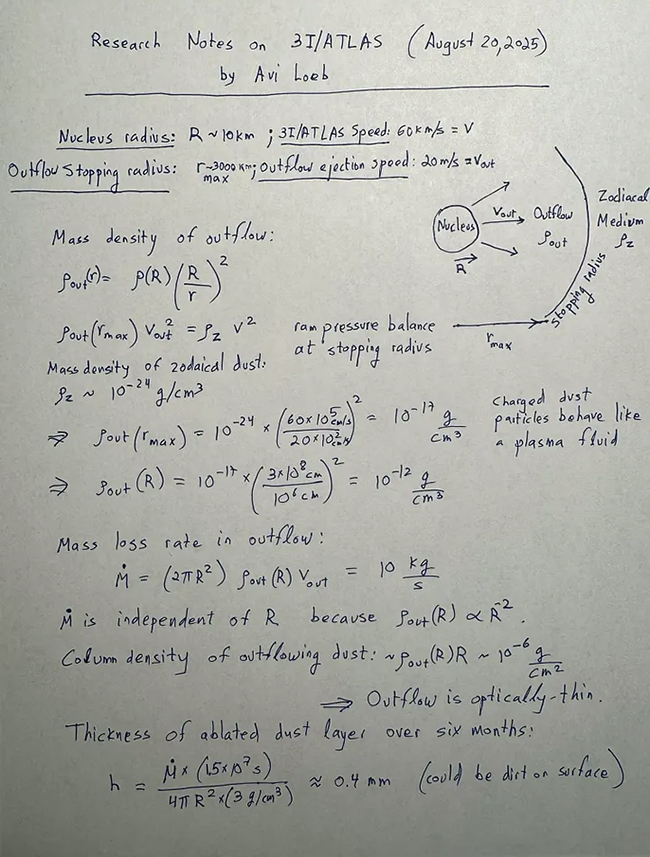 Research Notes on 3I/ATLAS (August 20, 2025)
by Avi Loeb
Nucleus radius: R ~ 10km ; 3I/ATLAS Speed: 60km/s = V
Outflow Stopping radius: r_max ~3000 km; Outflow ejection speed: 20m/s = V_out
Nucleus
R
V_out
Outflow
ρ_out
Zodiacal
Medium
ρ_z
stopping radius
r_max
Mass density of outflow:
ρ_out(r) = ρ(R) (R/r)^2
ρ_out(r_max) V_out^2 = ρ_z V^2
ram pressure balance
at stopping radius
Mass density of zodaical dust:
ρ_z ~ 10^-24 g/cm^3
⇒ ρ_out(r_max) = 10^-24 × (60×10^5 cm/s / 20×10^2 cm/s)^2 = 10^-17 g/cm^3
Charged dust
particles behave like
a plasma fluid
⇒ ρ_out(R) = 10^-17 × (3×10^8 cm / 10^6 cm)^2 = 10^-12 g/cm^3
Mass loss rate in outflow:
Ṁ = (2πR^2) ρ_out(R) V_out = 10 kg/s
Ṁ is independent of R because ρ_out(R) ∝ R^-2.
Column density of outflowing dust: ~ρ_out(R)R ~ 10^-6 g/cm^2
⇒ Outflow is optically-thin.
Thickness of ablated dust layer over six months:
h = Ṁ × (1.5×10^7 s) / 4πR^2×(3 g/cm^3) ≈ 0.4 mm (could be dirt on surface)